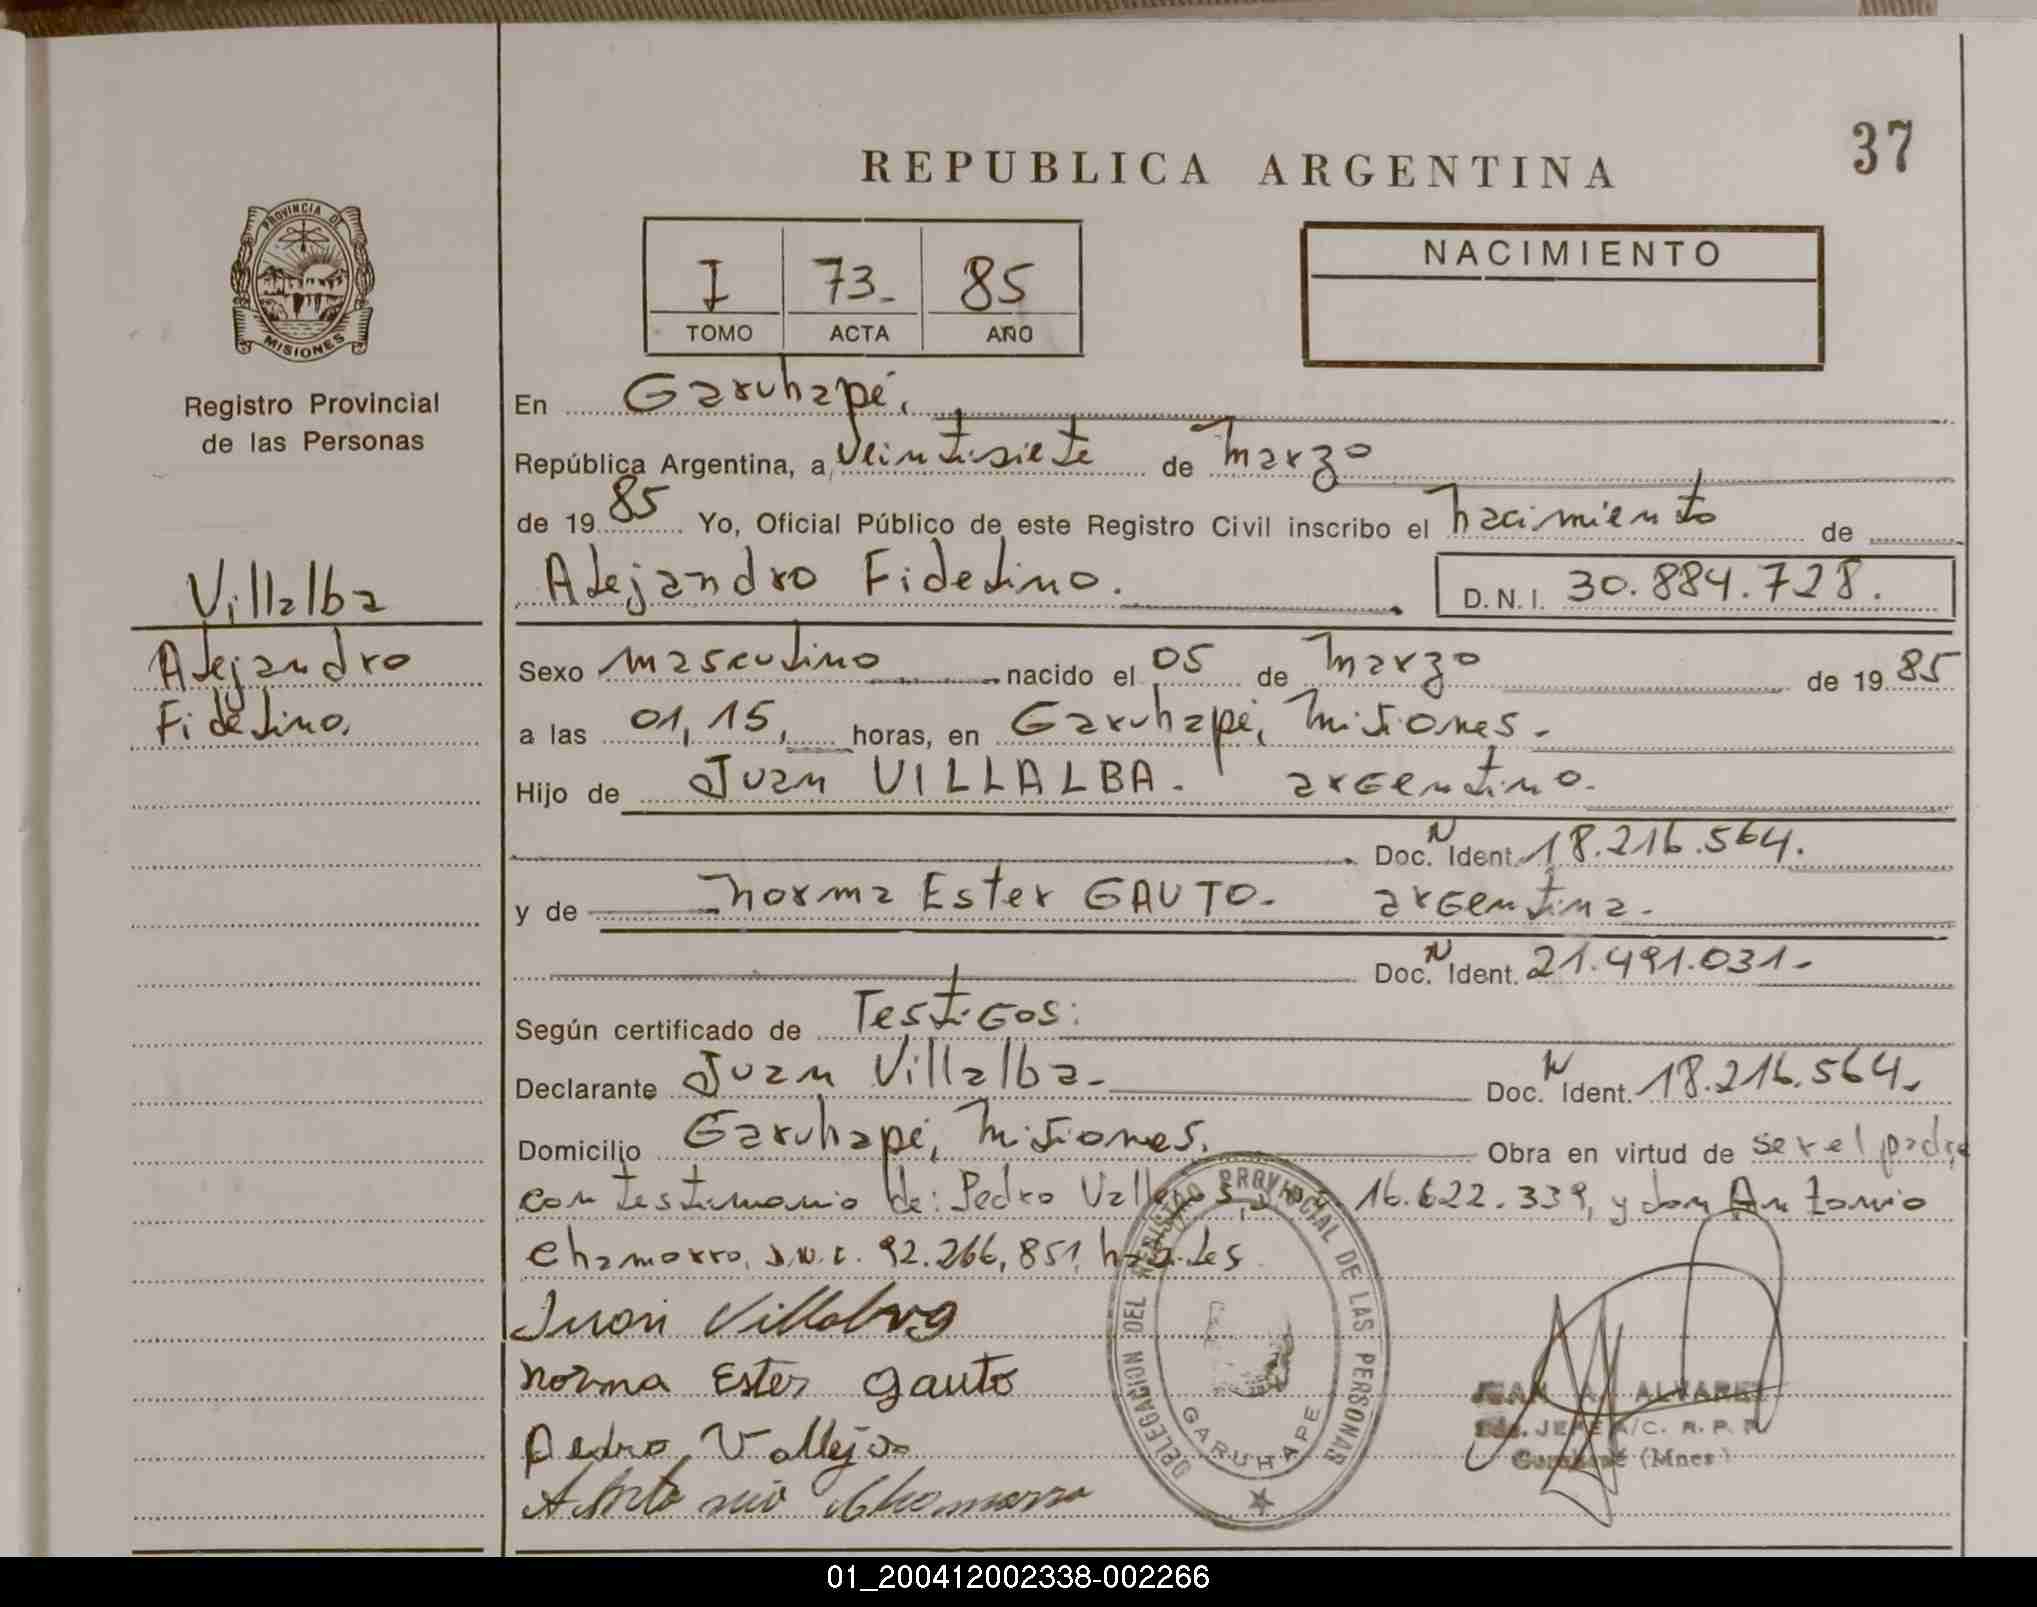 37
REPUBLICA ARGENTINA
PROVINCIA DE
MISIONES
Registro Provincial
de las Personas
I 73- 85
TOMO ACTA AÑO
NACIMIENTO
En Garuhapé,
República Argentina, a veintisiete de marzo
de 1985 Yo, Oficial Público de este Registro Civil inscribo el nacimiento de
Alejandro Fidelino. D.N.I. 30.884.728.
Villalba
Alejandro
Fidelino.
Sexo masculino nacido el 05 de marzo de 1985
a las 01,15, horas, en Garuhapé, Misiones.-
Hijo de Juan VILLALBA. argentino.
Doc. N Ident. 18.216.564.
y de Norma Ester GAUTO- argentina.-
Doc. N Ident. 21.491.031.-
Según certificado de Testigos:
Declarante Juan Villalba.- Doc. N Ident. 18.216.564.
Domicilio Garuhapé, Misiones. Obra en virtud de ser el padre
con testimonio de: Pedro Vallejos, 16.622.339, y don Antonio
Chamorro, D.N.I. 92.266,851, hábiles
Juan Villalva
Norma Ester Gauto
Pedro Vallejos
Antonio Chamorro
DELEGACION DEL REGISTRO PROVINCIAL DE LAS PERSONAS
GARUHAPE
JUAN A. ALVAREZ
JEFE A/C. R. P. P.
Garuhapé (Mnes)
01_200412002338-002266